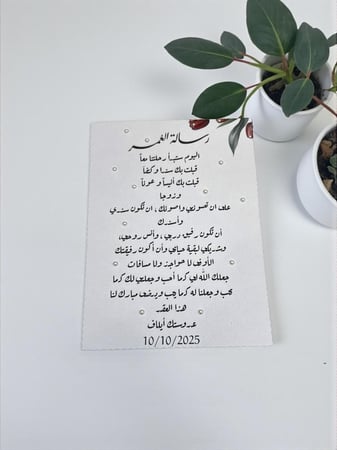 رسالة العمر
اليوم ستبدأ رحلتنا معاً
قبلت بك سندا وكتفاً
قبلت بك أنيساً وعوناً
وزوجا
على ان تصونني واصونك ، ان تكون سندي
وأسندك
أن تكون رفيق دربي ، وأنس روحي،
وشريكي لبقية حياتي وأن أكون رفيقتك
الأوفى لا حواجز ولا مسافات
جعلك الله لي كما أحب وجعلني لك كما
تحب وجعلنا له كما يحب ويرضى مبارك لنا
هذا العقد
عروستك أيلاف
10/10/2025